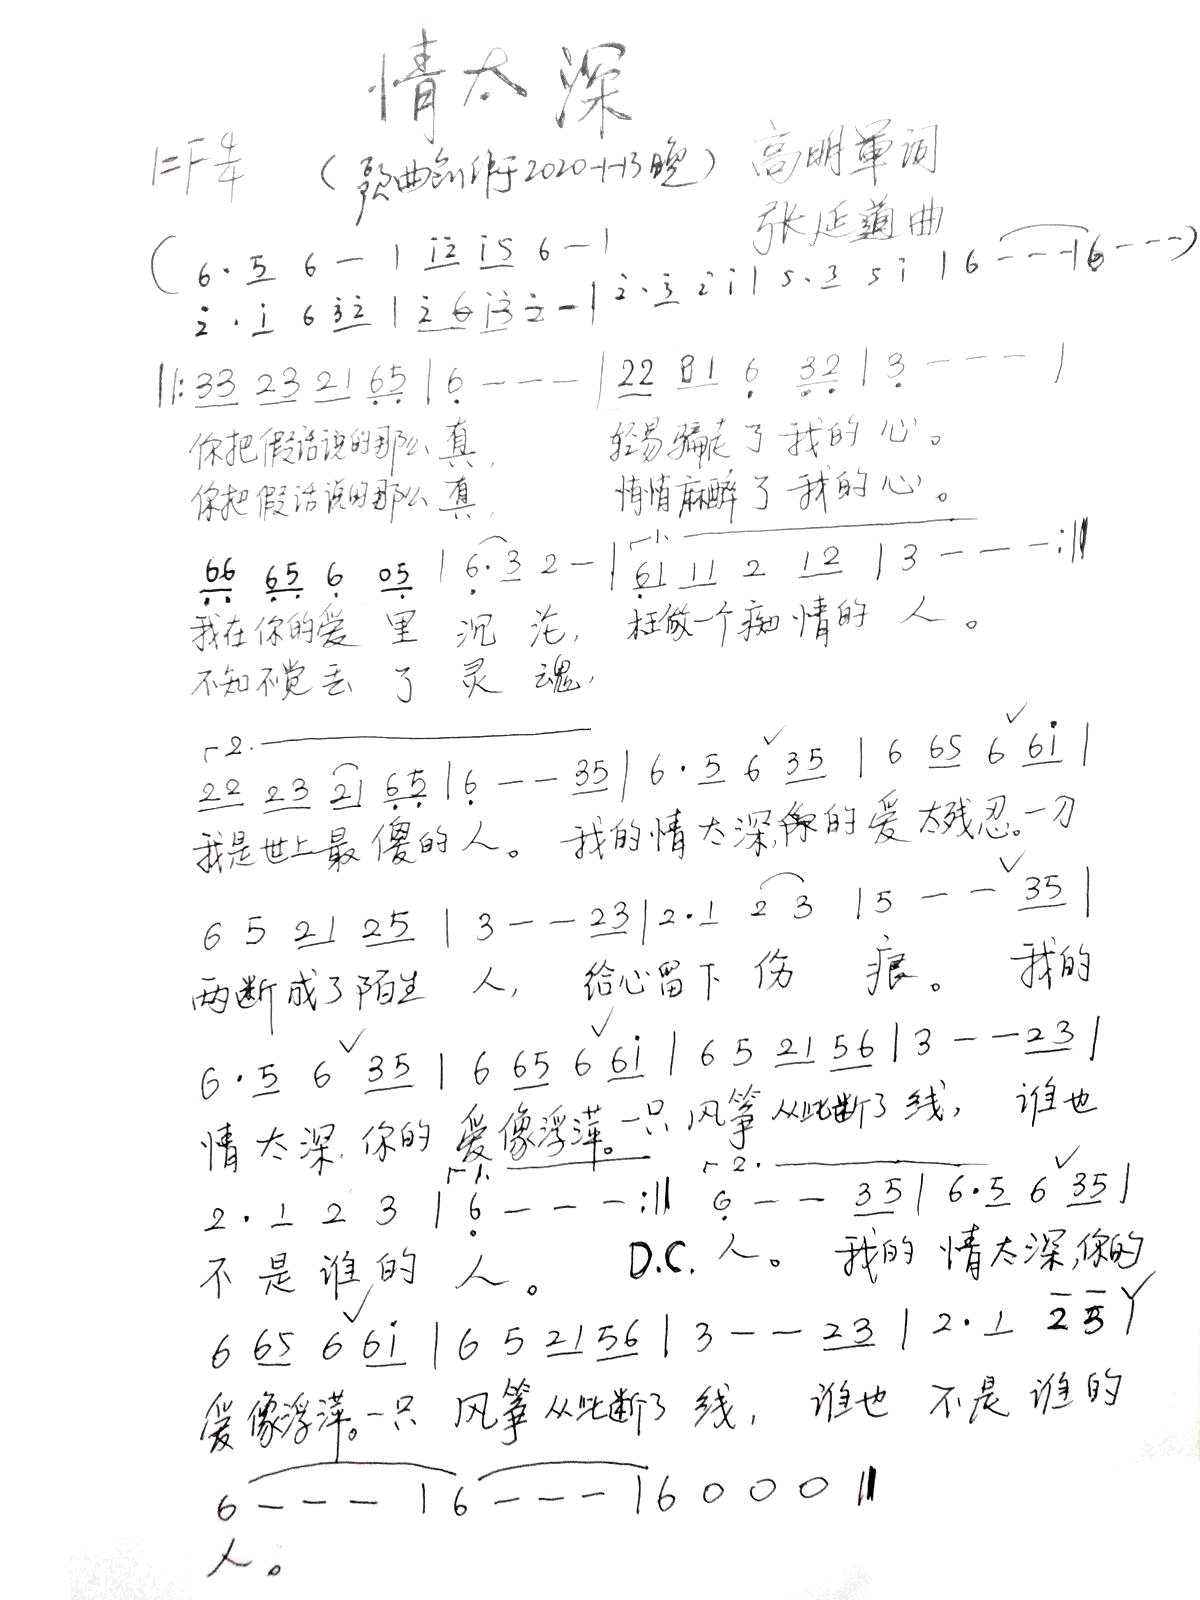 情太深
1=F 4/4 (歌曲创作于2020-1-13晚) 高明军词
张延道曲
(6·5 6 — | i2 i5 6 — |
2·i 6 32 | 2 6 i3 2 — | 2·3 2 i | 5·3 5 i | 6 - - - | 6 - - -)
||: 33 23 21 65 | 6 - - - | 22 81 6 32 | 3 - - - |
你把假话说的那么真, 轻易骗走了我的心。
你把假话说的那么真, 悄悄麻醉了我的心。
66 65 6 05 | 6·3 2 - | 1. 61 11 2 12 | 3 - - - :||
我在你的爱里沉沦, 枉做一个痴情的人。
不知不觉丢了灵魂,
2.
22 23 21 65 | 6 - - 35 | 6·5 6 35 | 6 65 6 6i |
我是世上最傻的人。 我的情太深,你的爱太残忍。一刀
6 5 21 25 | 3 - - 23 | 2·1 2 3 | 5 - - 35 |
两断成了陌生人, 给心留下伤痕。 我的
6·5 6 35 | 6 65 6 6i | 6 5 21 56 | 3 - - 23 |
情太深,你的爱像浮萍。一只风筝从此断了线, 谁也
1. 2.
2·1 2 3 | 6 - - - :|| 6 - - 35 | 6·5 6 35 |
不是谁的人。 D.C. 人。 我的情太深,你的
6 65 6 6i | 6 5 21 56 | 3 - - 23 | 2·1 2 3 |
爱像浮萍。一只风筝从此断了线, 谁也不是谁的
6 - - - | 6 - - - | 6 0 0 0 ||
人。